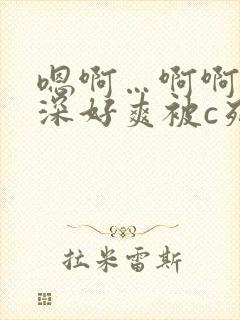 嗯啊…啊啊
深好爽被c死
拉米雷斯